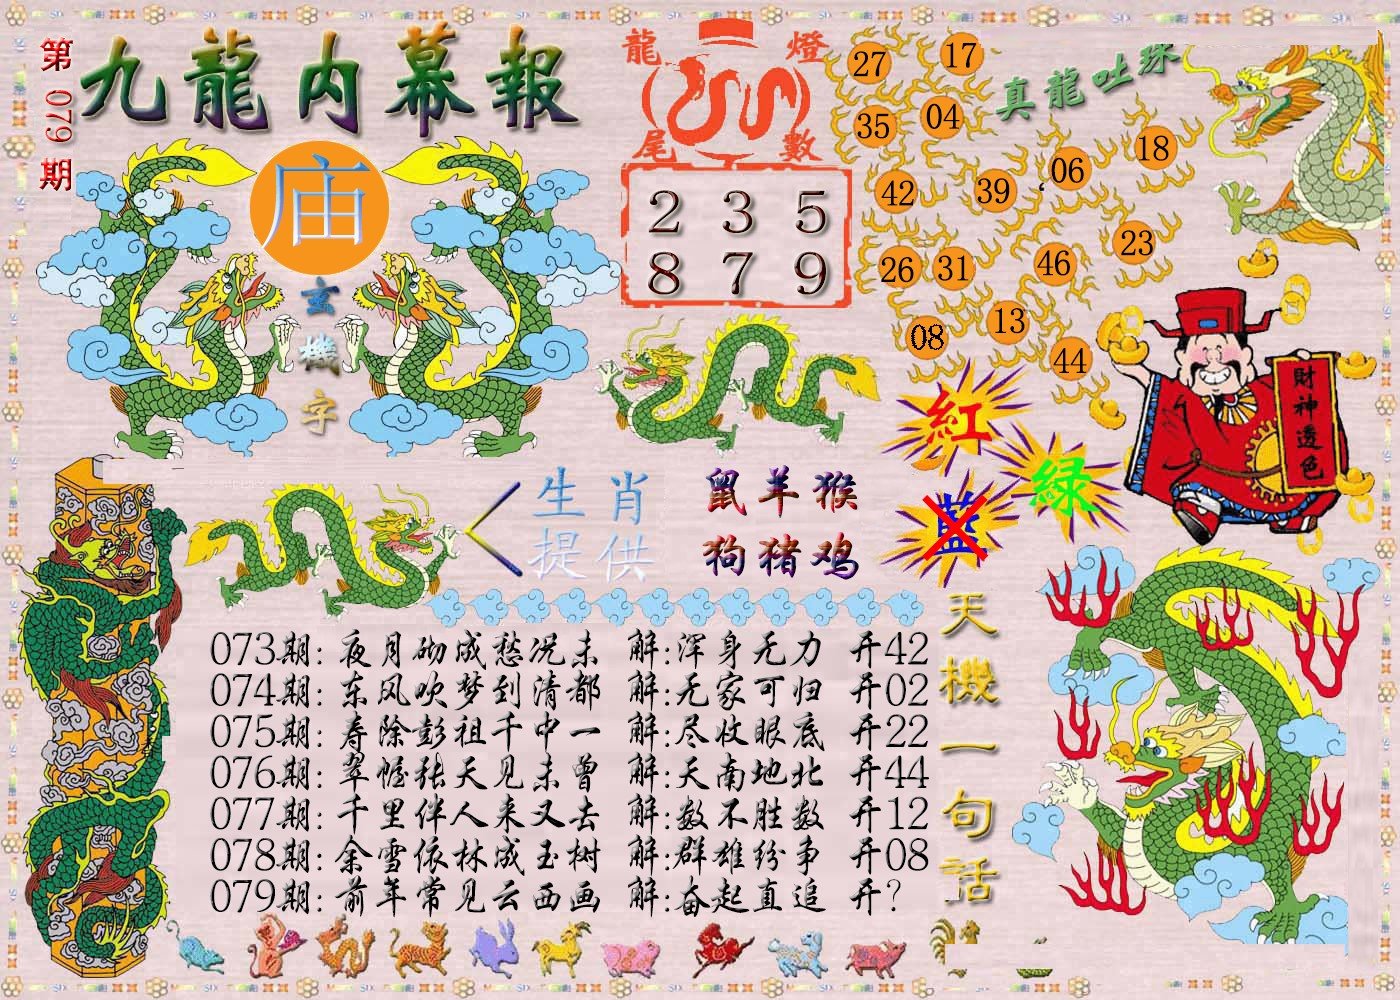 第079期
九龍内幕報
庙
玄機字
龍燈尾數
2 3 5
8 7 9
真龍吐珠
27 17
35 04
42 39 06 18
26 31 46 23
08 13 44
財神透色
紅
绿
藍
生肖提供
鼠羊猴
狗猪鸡
天機一句话
073期: 夜月砌成愁况未 解:浑身无力 开42
074期: 东风吹梦到清都 解:无家可归 开02
075期: 寿除彭祖千中一 解:尽收眼底 开22
076期: 翠幄张天见未曾 解:天南地北 开44
077期: 千里伴人来又去 解:数不胜数 开12
078期: 余雪依林成玉树 解:群雄纷争 开08
079期: 前年常见云西画 解:奋起直追 开?